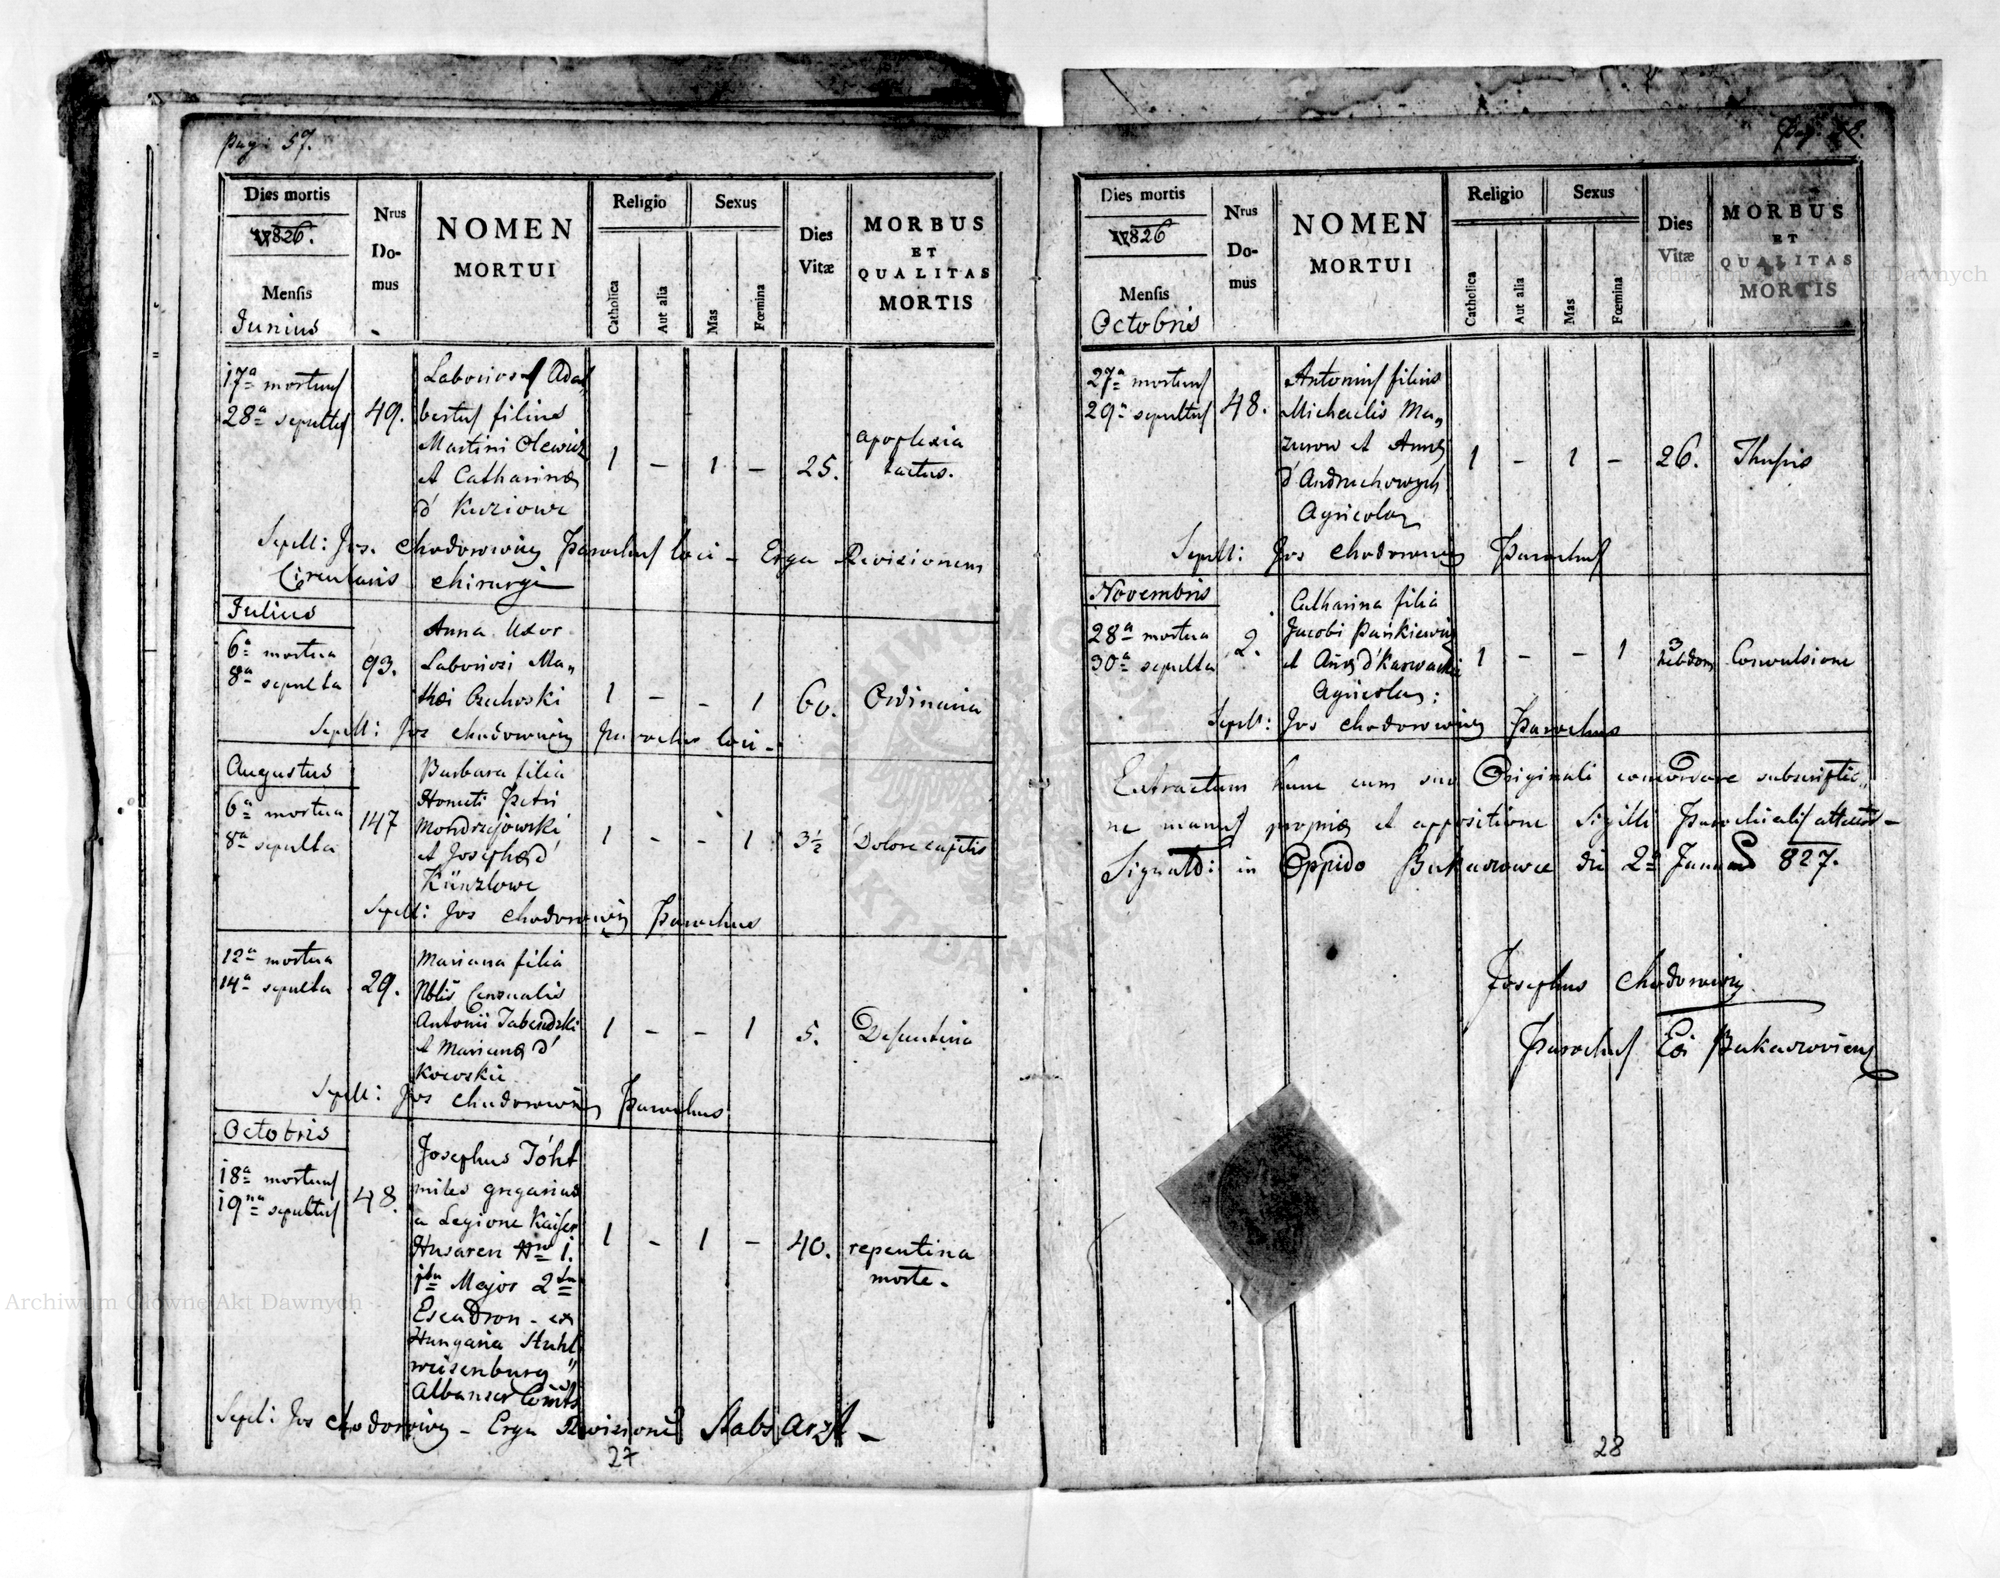 pag: 57.
Dies mortis
1826.
Mensis
Junius
Nrus
Do-
mus
NOMEN
MORTUI
Religio
Catholica
Aut alia
Sexus
Mas
Fœmina
Dies
Vitæ
MORBUS
ET
QUALITAS
MORTIS
17a mortuus
28a sepultus
49.
Laboriosus Adal„
bertus filius
Martini Olewicz
et Catharina
d' Kuziowe
1 – 1 –
25.
apoplexia
tactus.
Sepelt: Jos. Chodorowicz Parochus loci – Erga Revisionem
Circularis chirurgi
Julius
6a mortua
8a sepulta
93.
Anna Uxor
Laboriosi Ma„
thæi Czuchoski
1 – – 1
60.
Ordinaria
Sepelt: Jos Chodorowicz Parochus loci –
Augustus
6a mortua
8a sepulta
147
Barbara filia
Honesti Petri
Mondrzejowski
et Josephæ d'
Künzlowe
1 – – 1
3½
Dolore capitis
Sepelt: Jos Chodorowicz Parochus
12a mortua
14a sepulta
29.
Mariana filia
Nblis Censualis
Antonii
et Marianæ d'
Kocoskie
1 – – 1
5.
Sepelt: Jos Chodorowicz Parochus
Octobris
18a mortuus
19na sepultus
48.
Josephus Tóht
miles gregarius
a Legione Kaiser
Husaren Nro 1.
1ten Major 2ten
Escadron – ex
Hungaria Stuhl
weisenburg„
Albenser Comits
1 – 1 –
40.
repentina
morte.
Sepel: Jos Chodorowicz – Erga Revisione Stabs Arzt –
27
Pag: 58.
Dies mortis
1826
Mensis
Octobris
Nrus
Do-
mus
NOMEN
MORTUI
Religio
Catholica
Aut alia
Sexus
Mas
Fœmina
Dies
Vitæ
MORBUS
ET
QUALITAS
MORTIS
27a mortuus
29a sepultus
48.
Antonius filius
Michaelis Ma„
zurow et Annæ
d'Andruchowych
Agricolar
1 – 1 –
26.
Thusis
Sepelt: Jos Chodorowicz Parochus
Novembris
28a mortua
30a sepulta
2.
Catharina filia
Jacobi Pańkiewicz
et Annæ d'Karwacki
Agricolar:
1 – – 1
3
hebdom
Convulsione
Sepelt: Jos Chodorowicz Parochus
Extractum hunc cum suo Originali concordare subscriptio„
ne manus propriæ et appositione Sigilli Parochialis attestor –
Signatd: in Oppido Bukaczowce die 2a Januarii 827.
Josephus Chodorowicz
Parochus Bukaczoviens
28
Archiwum Główne Akt Dawnych
Archiwum Główne Akt Dawnych
ARCHIWUM GŁÓWNE AKT DAWNYCH